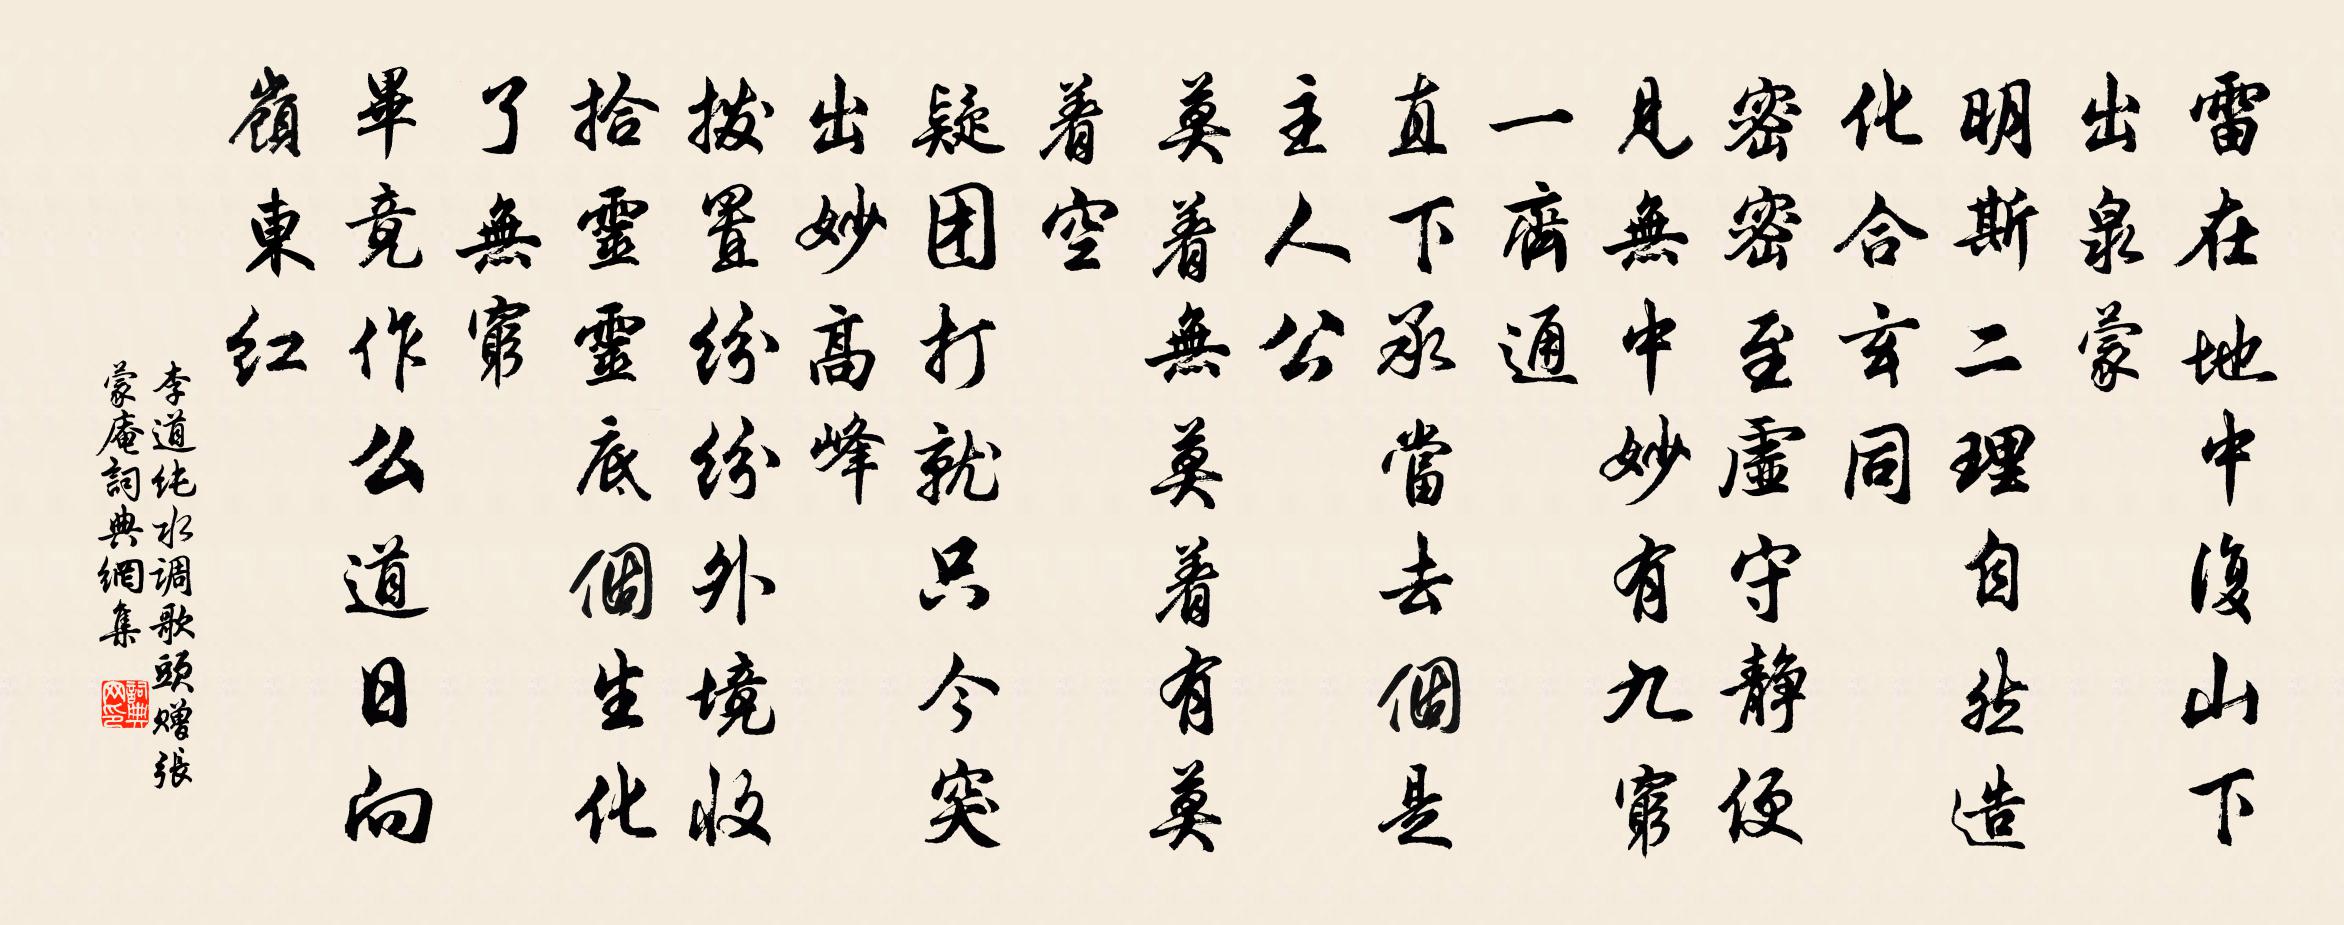 雷在地中復山下
出泉蒙
明斯二理自然造
化合玄同
密密至虛守靜便
見無中妙有九竅
一齊通
直下承當去個是
主人公
莫着無莫着有莫
着空
疑团打就只今突
出妙高峰
拨置纷纷外境收
拾靈靈底個生化
了無窮
畢竟作么道日向
嶺東红
李道纯水调歌頭赠張
蒙庵詞典網集
詞典网印